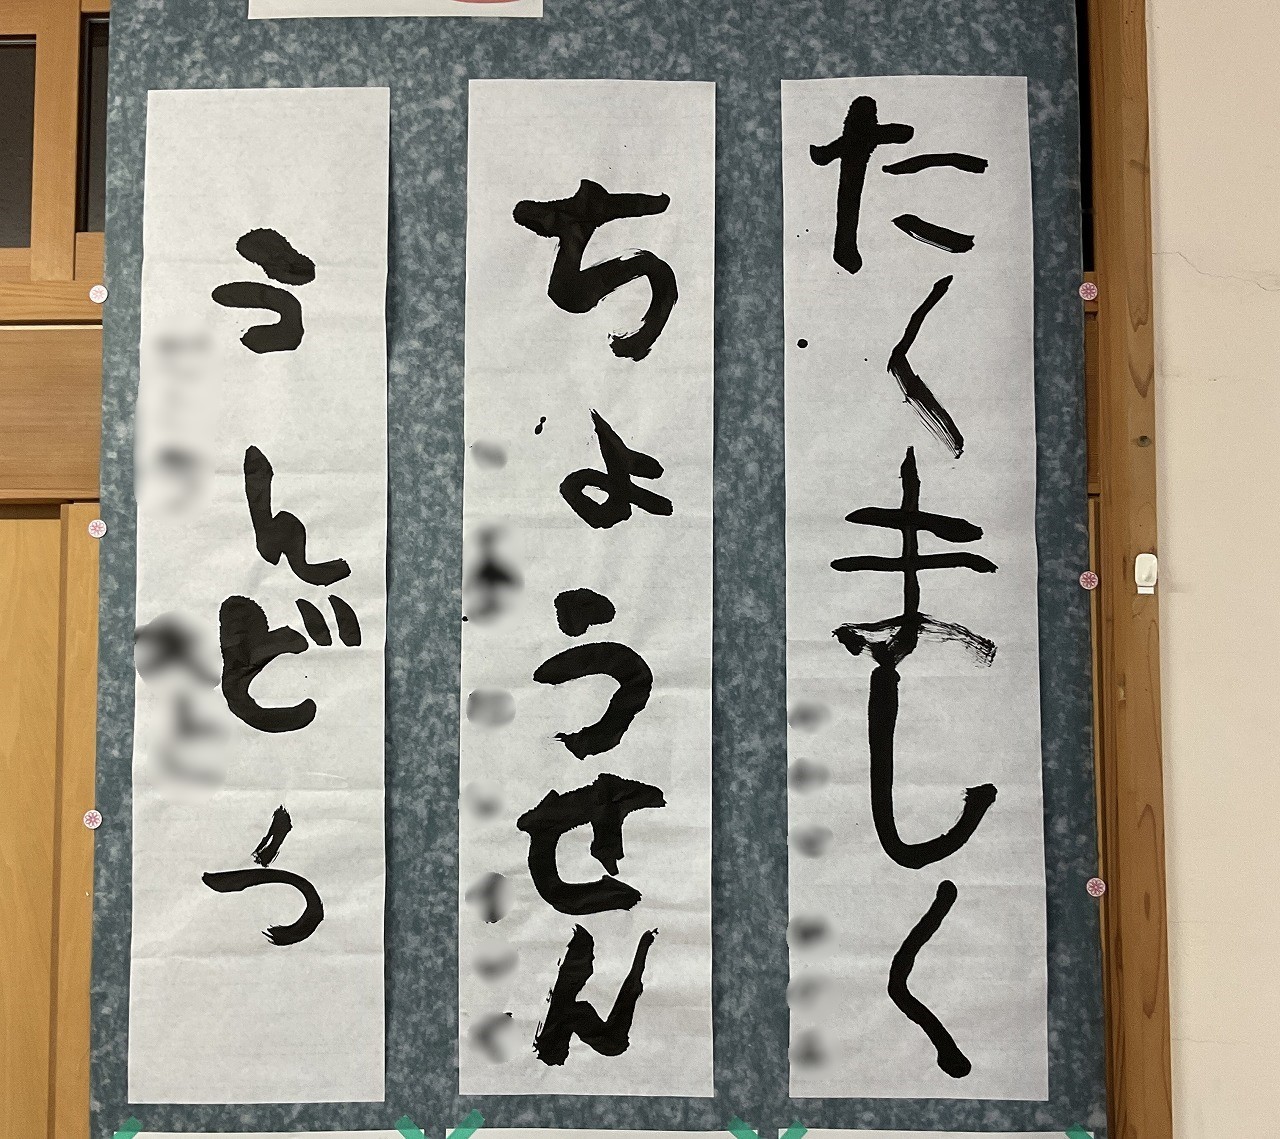 たくましく
ちょうせん
うんどう